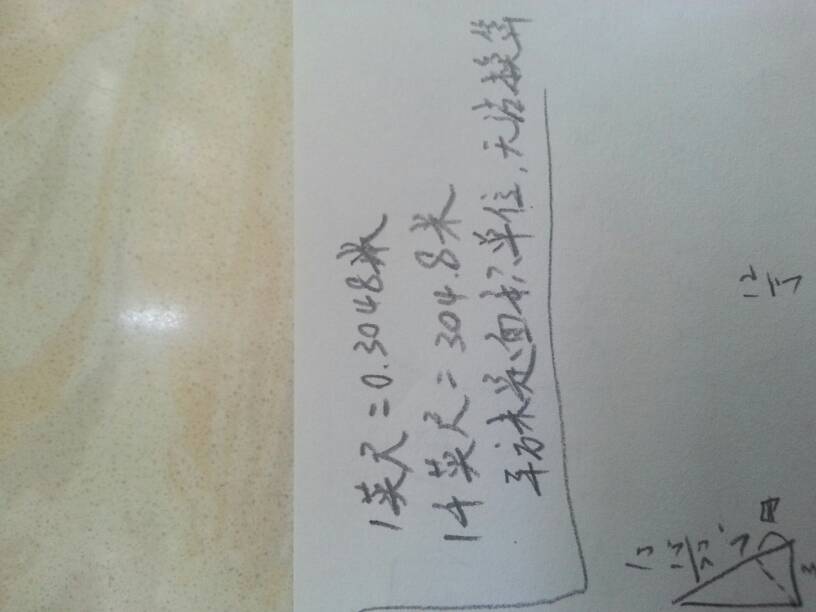 1英尺=0.3048米
1千英尺=304.8米
平方米是面积单位,无法换算